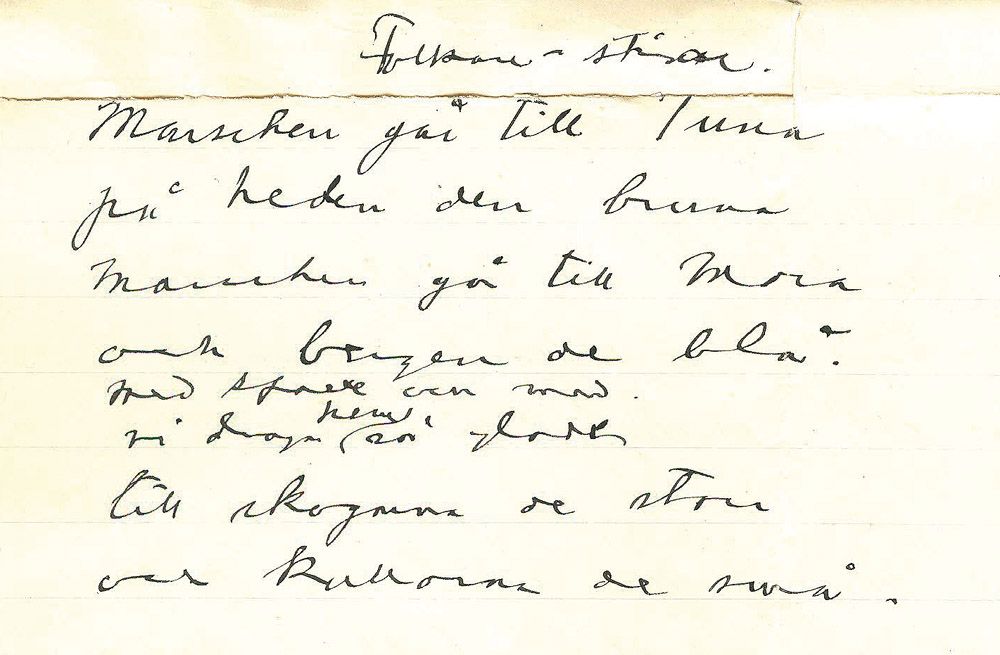 Marschen går till Tuna
på heden den bruna
Marschen går till Mora
och bergen de blå.
med och mod.
vi draga hem så glade
till skogarna de stora
och kullorna de små.